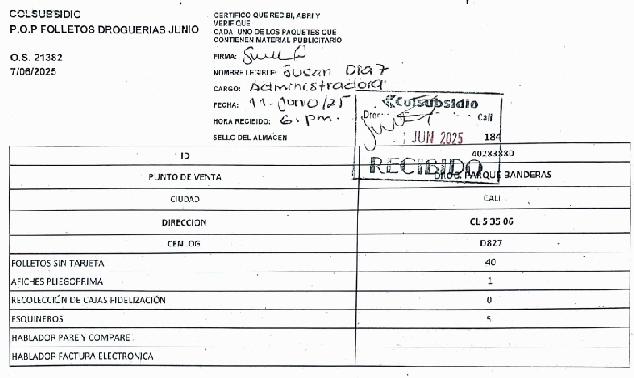 COLSUBSIDIO
P.O.P FOLLETOS DROGUERIAS JUNIO
O.S. 21382
7/06/2025
CERTIFICO QUE RECIBI, ABRI Y
VERIFIQUE
CADA UNO DE LOS PAQUETES QUE
CONTIENEN MATERIAL PUBLICITARIO
FIRMA:
NOMBRE LEGIBLE: Sucan Diaz
CARGO: Administradora
FECHA: 11-Junio/25
HORA RECIBIDO: 6. pm.
SELLO DEL ALMACEN
Colsubsidio
Cali
JUN 2025 184
RECIBIDO
ID
PUNTO DE VENTA DROG. PARQUE BANDERAS
CIUDAD CALI
DIRECCION CL 5 35 06
CEN. LOG D827
FOLLETOS SIN TARJETA 40
AFICHES PLIEGO FIMA 1
RECOLECCIÓN DE CAJAS FIDELIZACIÓN 0
ESQUINEROS 5
HABLADOR PARE Y COMPARE
HABLADOR FACTURA ELECTRONICA